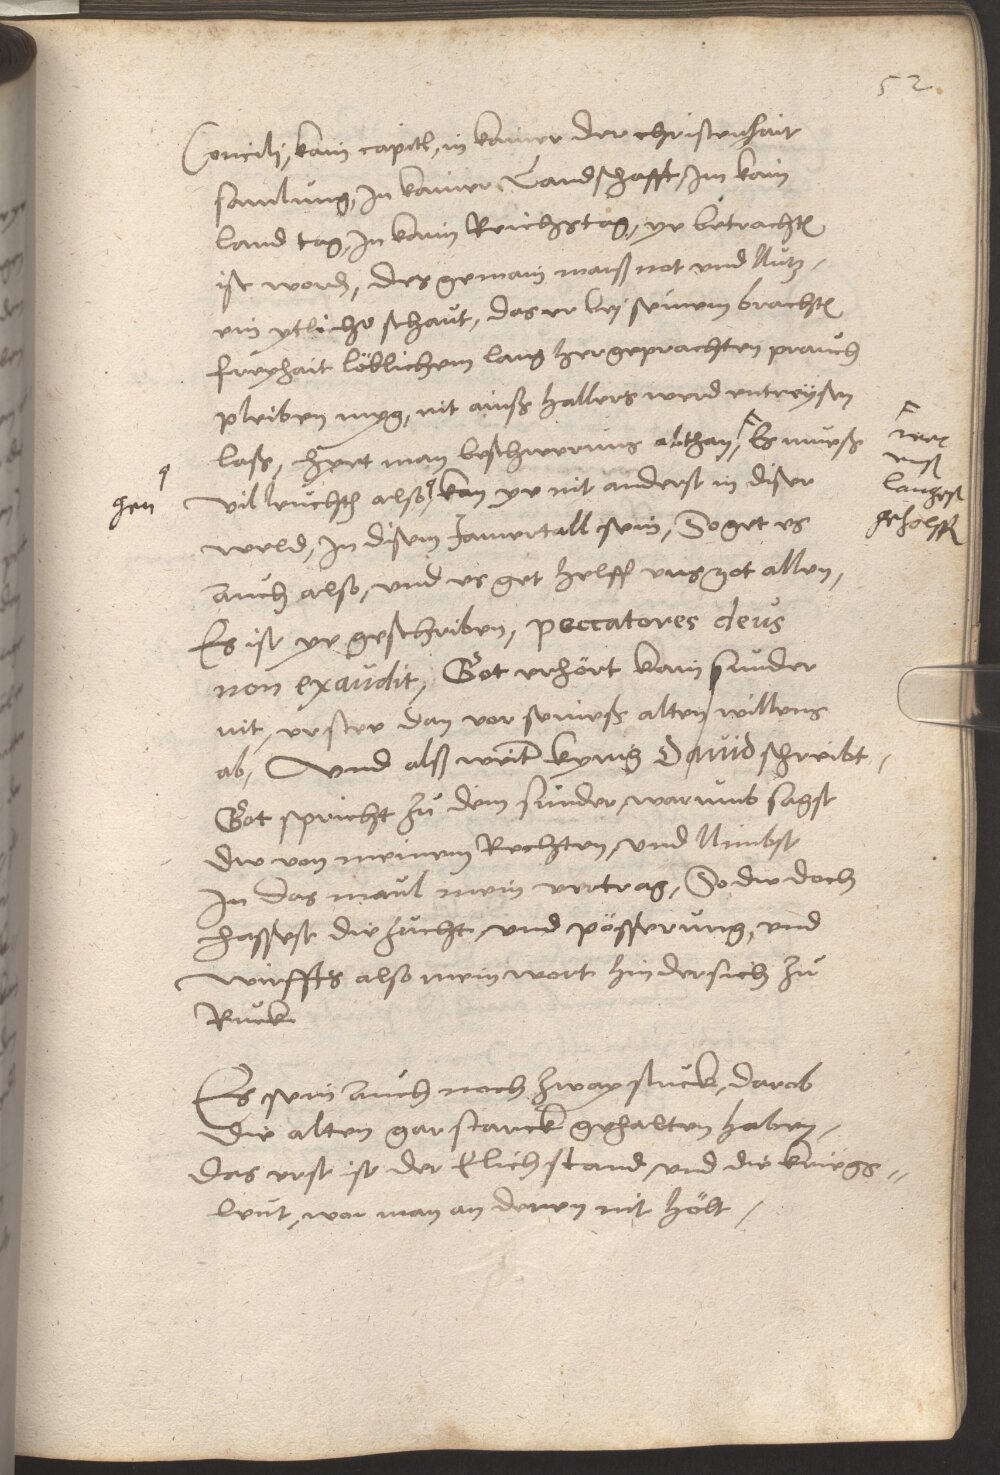 52.
Concili, kain capitl, in kainer der christenhait
samlung, In kainer Landschafft, Im kain
land tag, In kain Reichstag, ye betracht
ist word, des gemain mans not und Nutz,
ein ytlicher schaut, das er bej seinem bracht
freyhait löblichem lang hergeprachten prauch
pleiben mug, nit ainß hallers werd entreysen
laß, hert man beschwerung abthan, Es mueß
vil leucht also, kan ye nit anderst in diser
weld, In disem Jamertall sein, So get es
auch also, und es get helff uns got allen,
Es ist ye geschriben, peccatores deus
non exaudit, Got erhört kain sunder
nit, er stee dan vor seineß alten willens
ab, Und alß weit kynig David schreibt,
Got spricht zu dem sunder, warumb sagst
du von meinem Rechten, und Nimbst
In das maul mein vertrag, So du doch
hassest die zucht, und pösserung, und
wirffts also mein wort hindersich zu
Ruck
Es sein auch noch zway stuck, darob
die alten gar starck gehalten haben,
das erst ist der Elich stand, und die kriegs
leut, wo man an denen nit hölt,
hen
wer
unß
langest
geholff